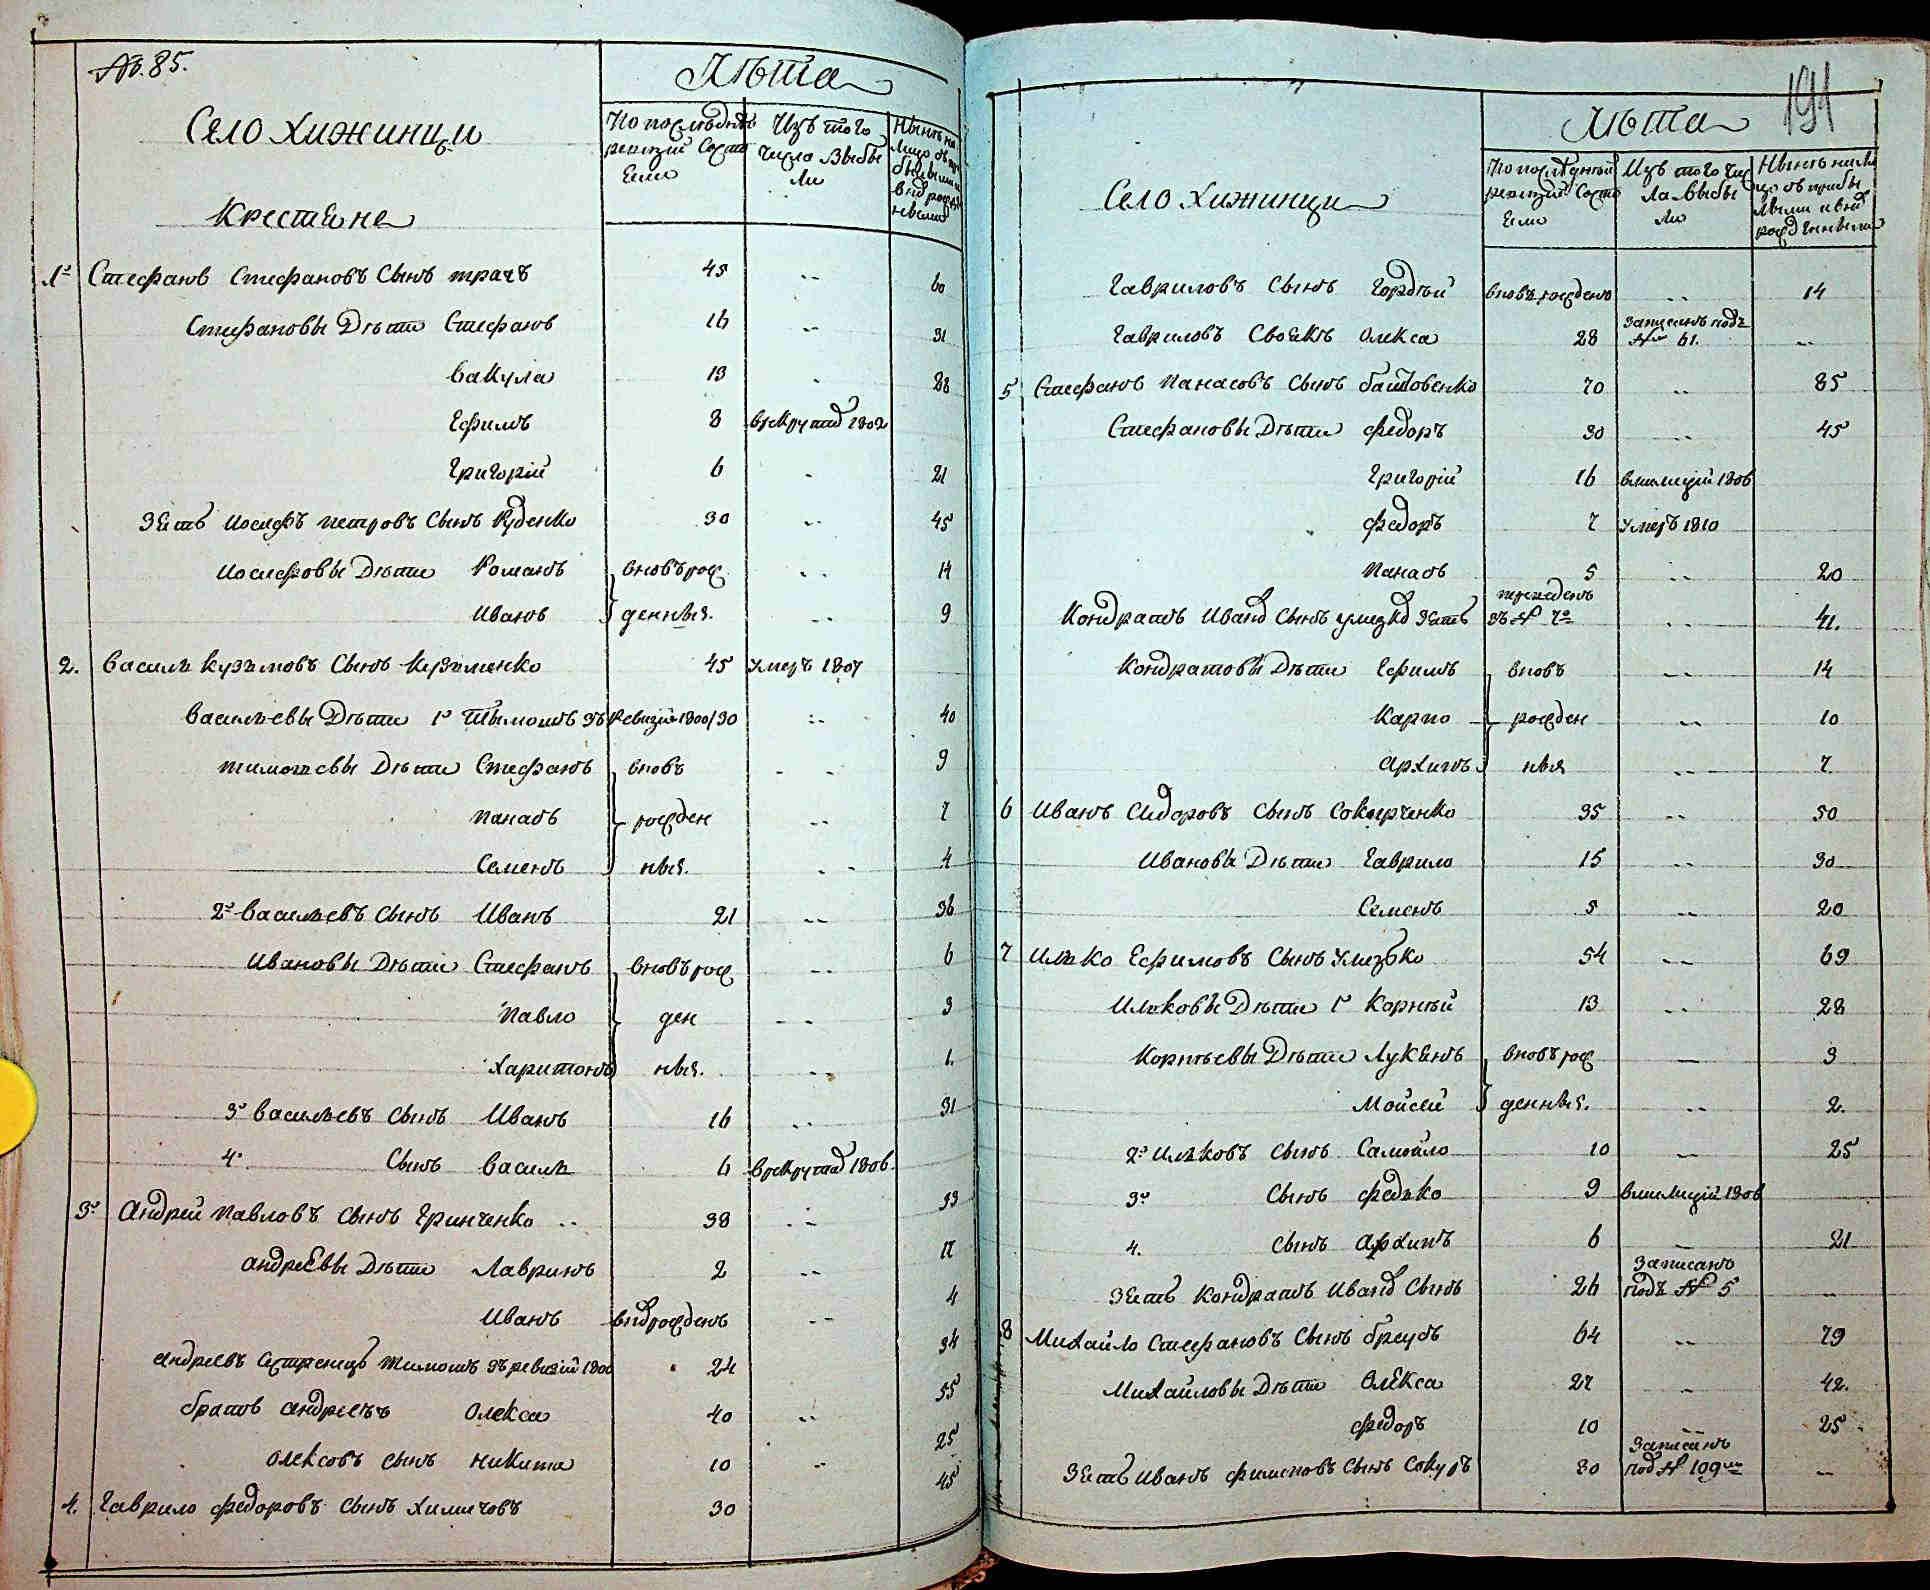 № 85.
Лѣта
Село Хижинци
По послѣдней ревизіи состояли
Изъ того числа выбыли
Нынѣ на лицо съ прибылыми и вновь рожденными
Крестяне
1е Стефанъ Стефановъ сынъ Трачъ 45 -- 60
Стефановы Дѣти Стефанъ 16 -- 31
Вакула 13 - 28
Ефимъ 8 врекруты 1802
Григорій 6 - 21
Зять Иосифъ Петровъ сынъ Руденко 30 -- 45
Иосифовы Дѣти Романъ вновърож -- 14
Иванъ денныя. -- 9
2. Василь Кузьмовъ сынъ Кузьменко 45 умеръ 1807
Васильевы Дѣти 1й Тымошъ зъ Ревизіи 1800/30 -- 40
Тимошевы Дѣти Стефанъ вновъ - - 9
Панасъ рожден -- 7
Семенъ ныя. - - 4
2й Васильевъ сынъ Иванъ 21 -- 36
Ивановы Дѣти Стефанъ вновърож -- 6
Павло ден -- 3
Харитонъ ныя. -- 1.
3й Васильевъ сынъ Иванъ 16 -- 31
4й сынъ Василь 6 врекруты 1806
3е Андрей Павловъ сынъ Гринченко -- 38 -- 53
Андреевы Дѣти Лавринъ 2 -- 17
Иванъ вновьрожденъ -- 4
Андреевъ Сестренецъ Тимошъ зъ ревизіи 1800 24 34
Братъ Андреевъ Олекса 40 -- 55
Олексовъ сынъ Никита 10 -- 25
4. Гаврило Федоровъ сынъ Химичовъ 30 45
191
Лѣта
Село Хижинци
По послѣдней ревизіи состояли
Изъ того числа выбыли
Нынѣ на лицо съ прибылыми и вновь рожденными
Гавриловъ сынъ Гордѣй вновърожденъ -- 14
Гавриловъ Своякъ Олекса 28 записанъ подъ № 61. --
5 Стефанъ Панасовъ сынъ Баштовенко 70 -- 85
Стефановы Дѣти Федоръ 30 -- 45
Григорій 16 вмилиціи 1806
Федоръ 7 умеръ 1810
Панасъ 5 -- 20
Кондратъ Иванов сынъ Улизко Зять зъ № 7о -- 41.
Кондратовы Дѣти Ефимъ вновъ -- 14
Карпо рожден -- 10
Архипъ ныя -- 7
6 Иванъ Сидоровъ сынъ Сокирченко 35 -- 50
Ивановы Дѣти Гаврило 15 -- 30
Семенъ 5 -- 20
7 Илько Ефимовъ сынъ Улизько 54 -- 69
Ильковы Дѣти 1й Корнѣй 13 -- 28
Корнѣевы Дѣти Лукянъ вновърож — 3
Мойсей денныя. -- 2.
2й Ильковъ сынъ Самойло 10 -- 25
3й сынъ Федько 9 вмилиціи 1806
4. сынъ Архипъ 6 — 21
Зять Кондратъ Иванов сынъ 26 Записанъ подъ № 5 --
8 Михайло Стефановъ сынъ Бреусъ 64 -- 79
Михайловы Дѣти Олекса 27 -- 42.
Федоръ 10 -- 25
Зять Иванъ Филиповъ сынъ Сокуръ 30 Записанъ под № 109м --